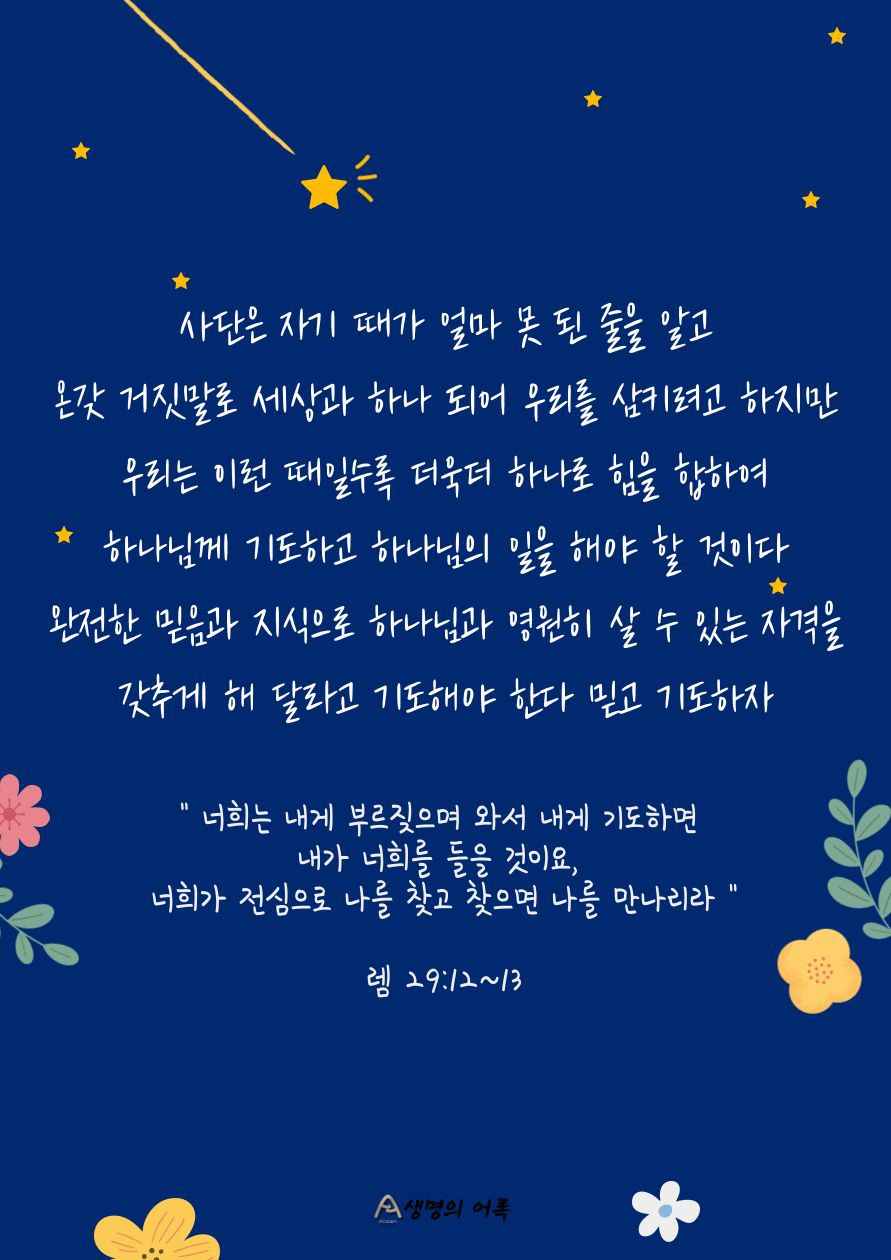 사단은 자기 때가 얼마 못 된 줄을 알고
온갖 거짓말로 세상과 하나 되어 우리를 삼키려고 하지만
우리는 이런 때일수록 더욱더 하나로 힘을 합하여
하나님께 기도하고 하나님의 일을 해야 할 것이다
완전한 믿음과 지식으로 하나님과 영원히 살 수 있는 자격을
갖추게 해 달라고 기도해야 한다 믿고 기도하자
" 너희는 내게 부르짖으며 와서 내게 기도하면
내가 너희를 들을 것이요,
너희가 전심으로 나를 찾고 찾으면 나를 만나리라 "
렘 29:12~13
생명의 어록